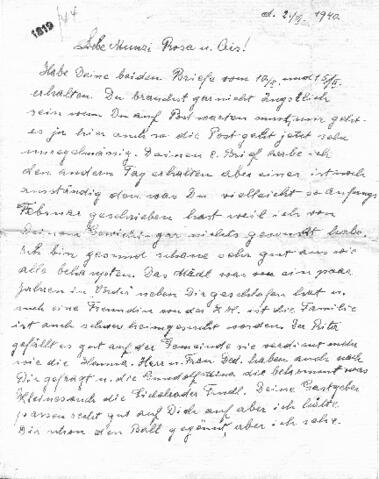 1819
44
d. 21/II. 1940
Liebe Munzi Rosa u. Ois!
Habe Deine beiden Briefe vom 10/II. und 15/II.
erhalten. Du brauchst gar nicht ängstlich
sein wenn Du auf Post warten musst, mir geht
es ja hier auch so die Post geht jetzt sehr
unregelmässig. Deinen 2. Brief habe ich
den andern Tag erhalten aber einer ist noch
ausständig den was Du vielleicht so Anfangs
Februar geschrieben hast weil ich von
Deinem gar nichts gewusst habe.
Ich bin gesund schaue sehr gut aus wie
alle behaupten. Das Mädl was vor ein paar
Jahren in neben Dir geschlafen hat u.
auch eine Freundin von der ist die Familie
ist auch schwer heimgesucht worden. Der Rita
gefällt es gut auf der Gemeinde sie verdient mehr
wie die Hanna. Herr u. Frau Bed. haben auch nach
Dir gefragt u. die die bekommt was
Kleines auch die Trudl. Deine Gastgeber
passen recht gut auf Dich auf aber ich hätte
Dir schon den Ball gegönnt, aber ich sehe